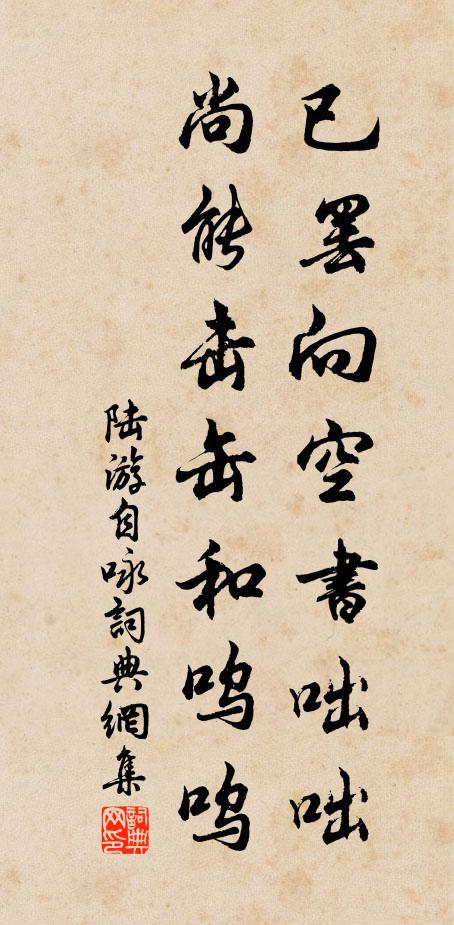 已罢向空書咄咄
尚能击缶和呜呜
陆游自咏詞典網集
詞典网印